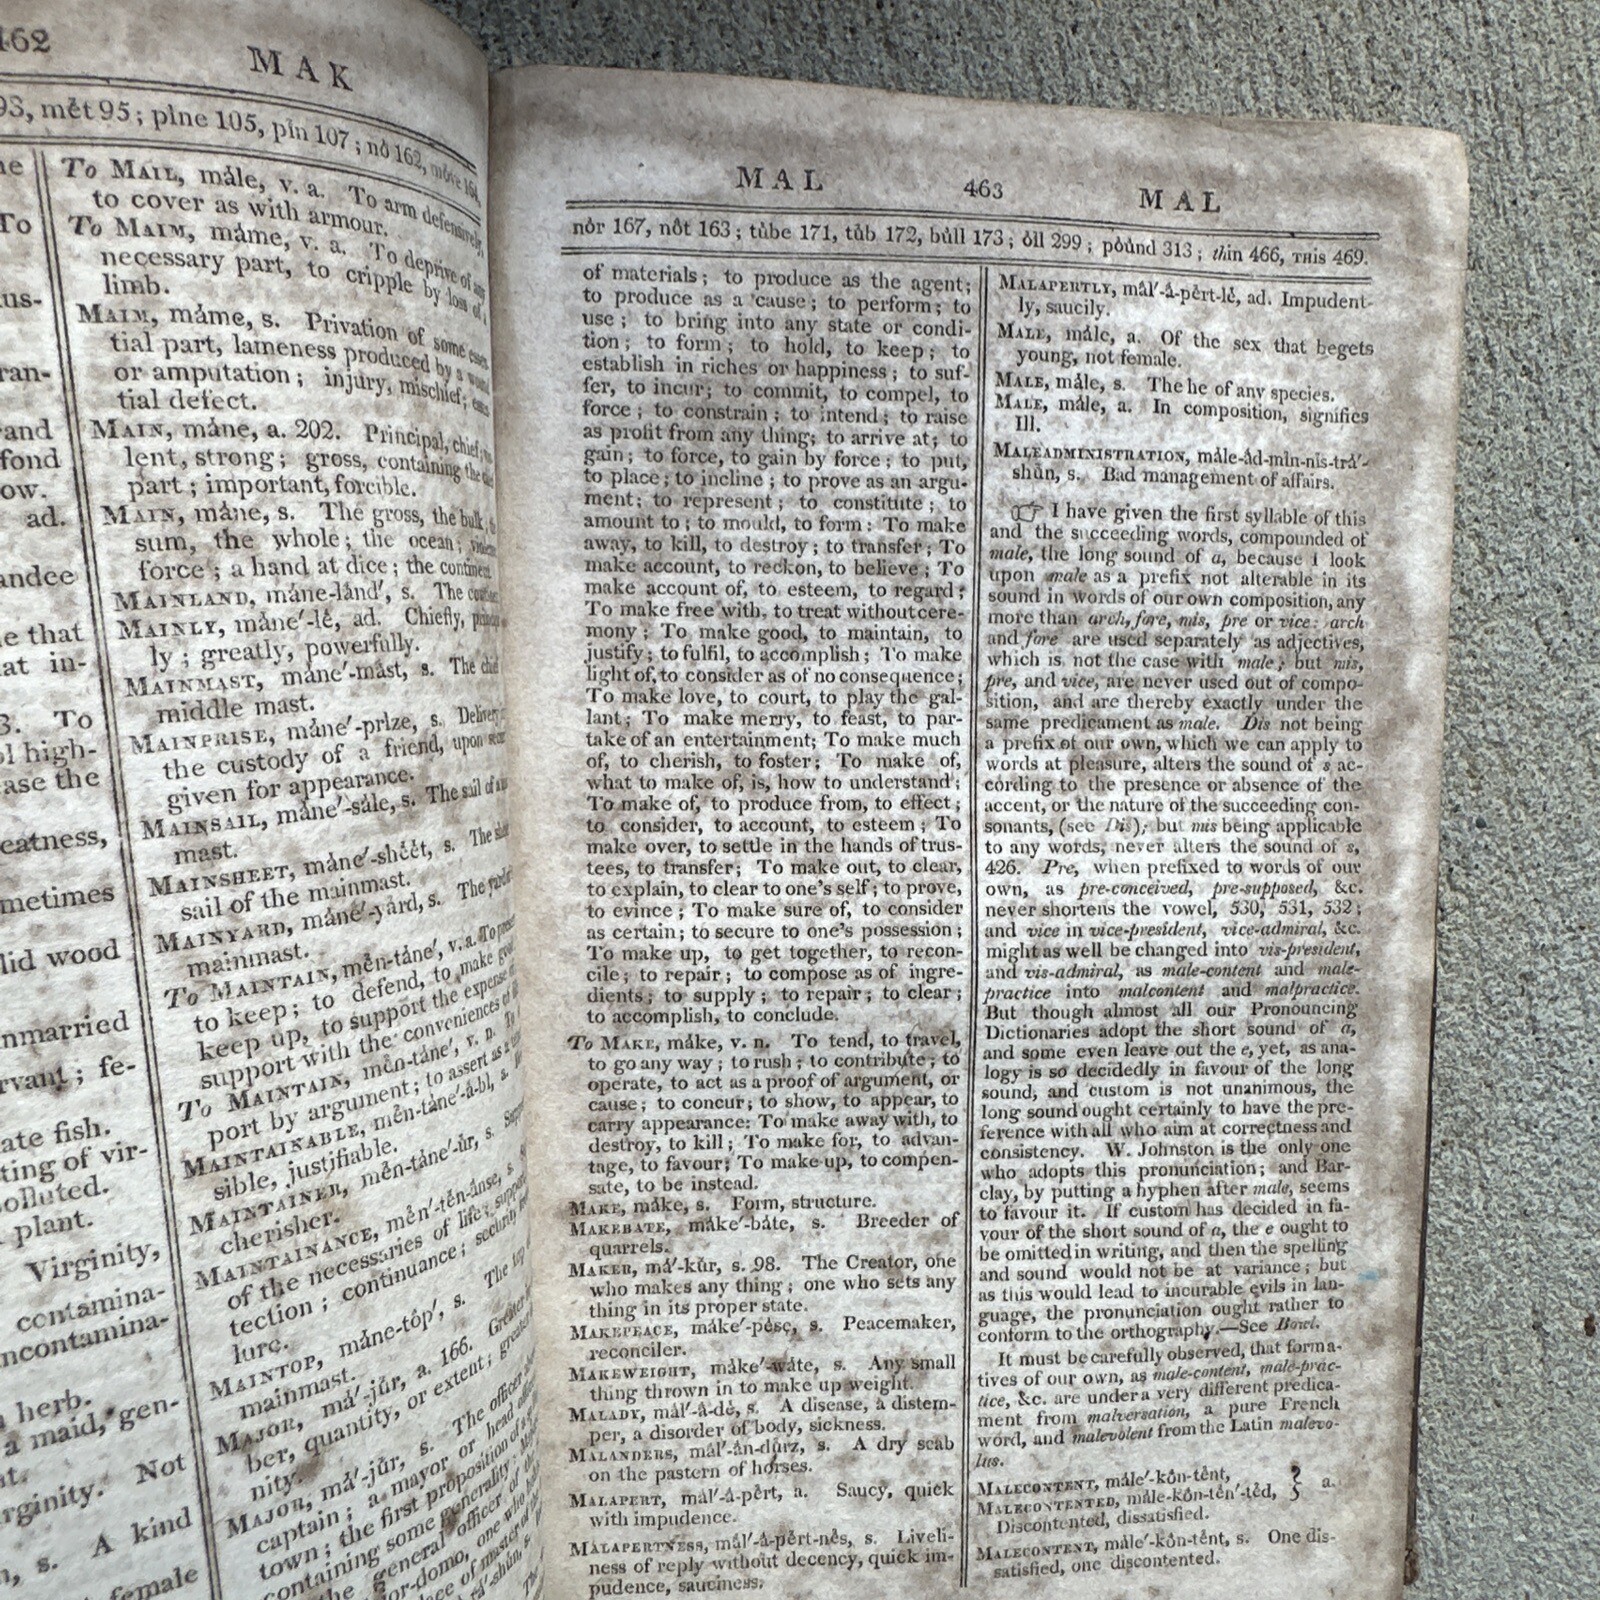 462
MAK
93, mêt 95; pine 105, pîn 107; nò 162, môve 164,
To MAIL, måle, v. a. To arm defensively,
to cover as with armour.
To MAIM, måme, v. a. To deprive of any
necessary part, to cripple by loss of a
limb.
MAIM, måme, s. Privation of some essen-
tial part, lameness produced by a wound
or amputation; injury, mischief; essen-
tial defect.
MAIN, måne, a. 202. Principal, chief;
lent, strong; gross, containing the chief
part; important, forcible.
MAIN, måne, s. The gross, the bulk;
sum, the whole; the ocean; violence
force; a hand at dice; the continent
MAINLAND, måne-lånd′, s. The
MAINLY, måne′-lė, ad. Chiefly,
ly; greatly, powerfully.
MAINMAST, måne′-måst, s. The chief
middle mast.
MAINPRISE, måne′-prîze, s. Delivery
the custody of a friend, upon
given for appearance.
MAINSAIL, måne′-såle, s. The sail of
mast.
MAINSHEET, måne′-shėėt, s. The
sail of the mainmast.
MAINYARD, måne′-yård, s. The yard
mainmast.
To MAINTAIN, mên-tåne′, v. a. To
to keep; to defend, to make good
keep up, to support the expense of
support with the conveniences of
To MAINTAIN, mên-tåne′, v. n. To
port by argument; to assert as a
MAINTAINABLE, mên-tåne′-å-bl, a.
sible, justifiable.
MAINTAINER, mên-tåne′-ůr, s.
cherisher.
MAINTAINANCE, mên′-tên-ånse, s.
of the necessaries of life; support
tection; continuance; security
lure.
MAINTOP, måne-tôp′, s. The top
mainmast.
MAJOR, må′-jůr, a. 166. Greater
ber, quantity, or extent; greater
nity.
MAJOR, må′-jůr, s. The officer
captain; a mayor or head officer
town; the first proposition of a
containing some generality;
the general officer of the
or-domo, one who
lace of master of
The
To
us-
ran-
and
fond
ow.
ad.
andee
e that
at in-
3. To
ol high-
ase the
eatness,
metimes
lid wood
nmarried
rvant; fe-
ate fish.
ting of vir-
olluted.
plant.
Virginity,
contamina-
ncontamina-
herb.
a maid, gen-
nt.
rginity. Not
s. A kind
female
MAL 463 MAL
nȯr 167, nôt 163; tůbe 171, tůb 172, bůll 173; ȯll 299; pȯůnd 313; thin 466, THIS 469.
of materials; to produce as the agent;
to produce as a cause; to perform; to
use; to bring into any state or condi-
tion; to form; to hold, to keep; to
establish in riches or happiness; to suf-
fer, to incur; to commit, to compel, to
force; to constrain; to intend; to raise
as profit from any thing; to arrive at; to
gain; to force, to gain by force; to put,
to place; to incline; to prove as an argu-
ment; to represent; to constitute; to
amount to; to mould, to form: To make
away, to kill, to destroy; to transfer; To
make account, to reckon, to believe; To
make account of, to esteem, to regard;
To make free with, to treat without cere-
mony; To make good, to maintain, to
justify; to fulfil, to accomplish; To make
light of, to consider as of no consequence;
To make love, to court, to play the gal-
lant; To make merry, to feast, to par-
take of an entertainment; To make much
of, to cherish, to foster; To make of,
what to make of, is, how to understand;
To make of, to produce from, to effect;
to consider, to account, to esteem; To
make over, to settle in the hands of trus-
tees, to transfer; To make out, to clear,
to explain, to clear to one's self; to prove,
to evince; To make sure of, to consider
as certain; to secure to one's possession;
To make up, to get together, to recon-
cile; to repair; to compose as of ingre-
dients; to supply; to repair; to clear;
to accomplish, to conclude.
To MAKE, måke, v. n. To tend, to travel,
to go any way; to rush; to contribute; to
operate, to act as a proof of argument, or
cause; to concur; to show, to appear, to
carry appearance: To make away with, to
destroy, to kill; To make for, to advan-
tage, to favour; To make up, to compen-
sate, to be instead.
MAKE, måke, s. Form, structure.
MAKEBATE, måke′-båte, s. Breeder of
quarrels.
MAKER, må′-kůr, s. 98. The Creator, one
who makes any thing; one who sets any
thing in its proper state.
MAKEPEACE, måke′-pėse, s. Peacemaker,
reconciler.
MAKEWEIGHT, måke′-wåte, s. Any small
thing thrown in to make up weight.
MALADY, mål′-å-dė, s. A disease, a distem-
per, a disorder of body, sickness.
MALANDERS, mål′-ån-důrz, s. A dry scab
on the pastern of horses.
MALAPERT, mål′-å-pêrt, a. Saucy, quick
with impudence.
MALAPERTNESS, mål′-å-pêrt-nês, s. Liveli-
ness of reply without decency, quick im-
pudence, sauciness.
MALAPERTLY, mål′-å-pêrt-lė, ad. Impudent-
ly, saucily.
MALE, måle, a. Of the sex that begets
young, not female.
MALE, måle, s. The he of any species.
MALE, måle, a. In composition, signifies
Ill.
MALEADMINISTRATION, måle-åd-mîn-nîs-trå′-
shůn, s. Bad management of affairs.
☞ I have given the first syllable of this
and the succeeding words, compounded of
male, the long sound of a, because I look
upon male as a prefix not alterable in its
sound in words of our own composition, any
more than arch, fore, mis, pre or vice: arch
and fore are used separately as adjectives,
which is not the case with male; but mis,
pre, and vice, are never used out of compo-
sition, and are thereby exactly under the
same predicament as male. Dis not being
a prefix of our own, which we can apply to
words at pleasure, alters the sound of s ac-
cording to the presence or absence of the
accent, or the nature of the succeeding con-
sonants, (see Dis); but mis being applicable
to any words, never alters the sound of s,
426. Pre, when prefixed to words of our
own, as pre-conceived, pre-supposed, &c.
never shortens the vowel, 530, 531, 532;
and vice in vice-president, vice-admiral, &c.
might as well be changed into vis-president,
and vis-admiral, as male-content and male-
practice into malcontent and malpractice.
But though almost all our Pronouncing
Dictionaries adopt the short sound of a,
and some even leave out the e, yet, as ana-
logy is so decidedly in favour of the long
sound, and custom is not unanimous, the
long sound ought certainly to have the pre-
ference with all who aim at correctness and
consistency. W. Johnston is the only one
who adopts this pronunciation; and Bar-
clay, by putting a hyphen after male, seems
to favour it. If custom has decided in fa-
vour of the short sound of a, the e ought to
be omitted in writing, and then the spelling
and sound would not be at variance; but
as this would lead to incurable evils in lan-
guage, the pronunciation ought rather to
conform to the orthography.—See Bowl.
It must be carefully observed, that forma-
tives of our own, as male-content, male-prac-
tice, &c. are under a very different predica-
ment from malversation, a pure French
word, and malevolent from the Latin malevo-
lus.
MALECONTENT, måle′-kôn-tênt,
MALECONTENTED, måle-kôn-tên′-têd, } a.
Discontented, dissatisfied.
MALECONTENT, måle′-kôn-tênt, s. One dis-
satisfied, one discontented.